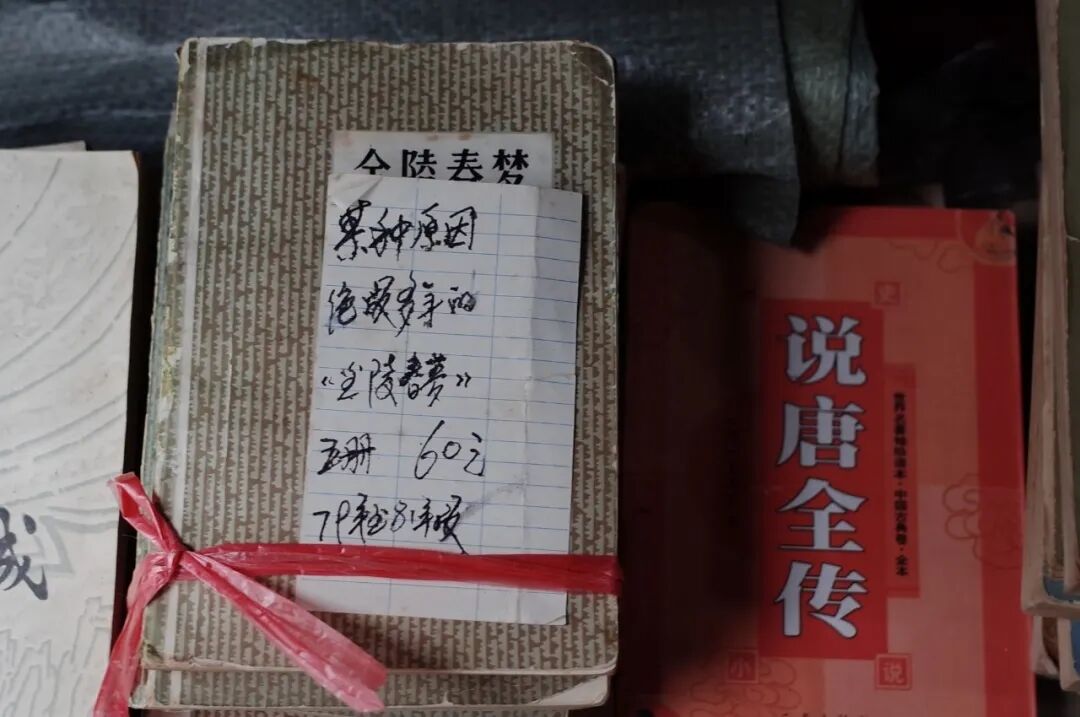 金陵春梦
某种原因
绝版多年的
《金陵春梦》
五册 60元
79年至81年版
说唐全传
世界名著精编读本·中国古典卷·全本
史
小
说